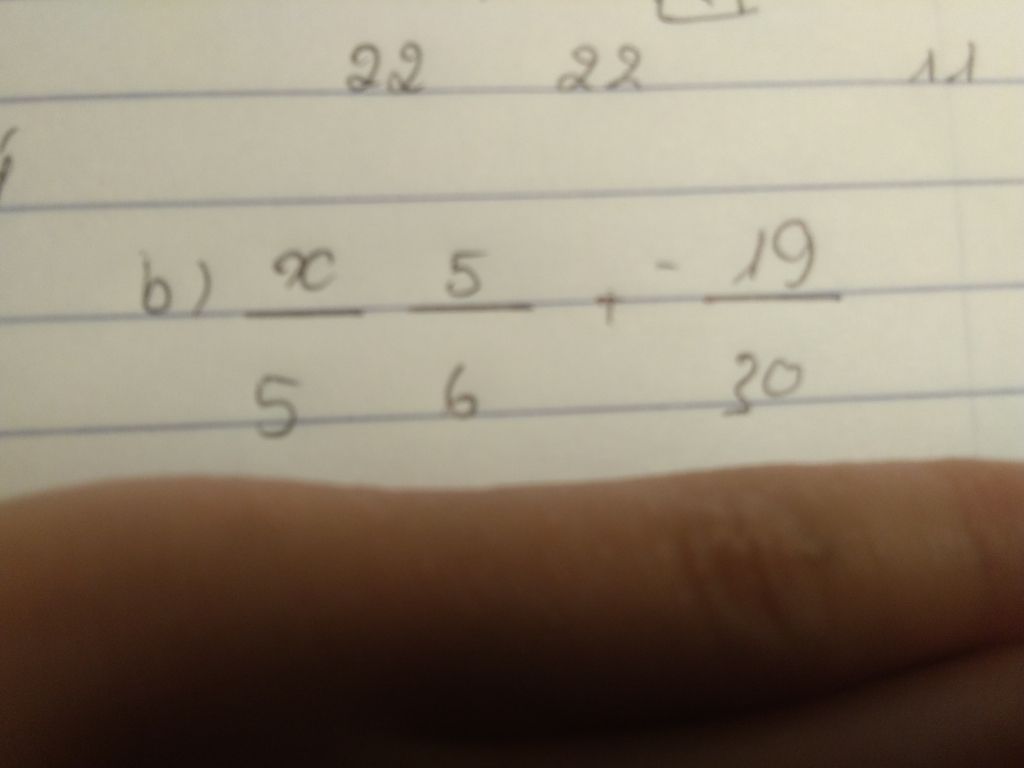 22 22 11
b) x/5 5/6 + -19/30